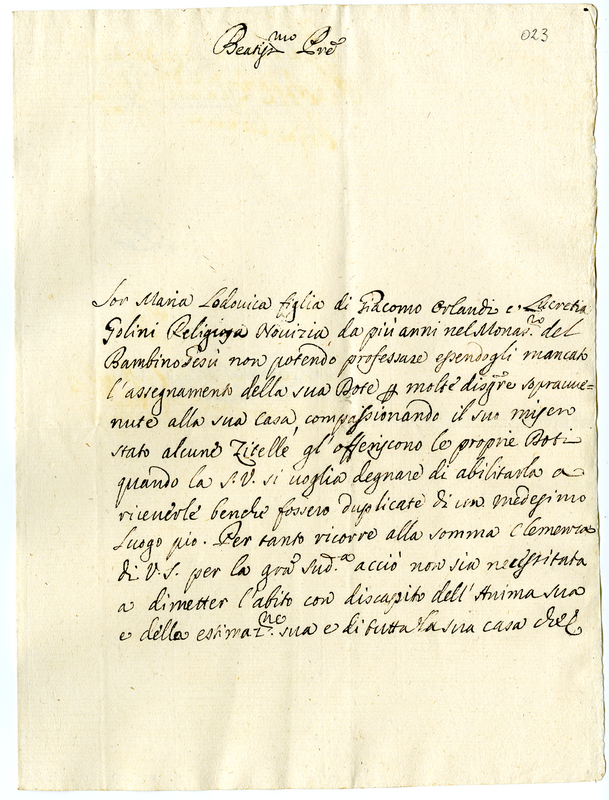 023
Beatiss.mo Pre
Sor Maria Lodovica figlia di Giacomo Orlandi e Lucretia
Golini Religiosa Novizia da più anni nel Monas.ro del
Bambino Gesù non potendo professare essendogli mancato
l'assegnamento della sua Dote molte disgre sopraue=
nute alla sua Casa, compassionando il suo miser
stato alcune Zitelle gl'offeriscono le proprie Doti
quando la S.V. si voglia degnare di abilitarla a
riceverle benche fossero duplicate di un medesimo
Luogo pio. Per tanto ricorre alla somma Clemenza
di V.S. per la gra sud.a acciò non sia necessitata
a dimetter l'abito con discapito dell'Anima sua
e della estimaz.ne sua e di tutta la sua casa che